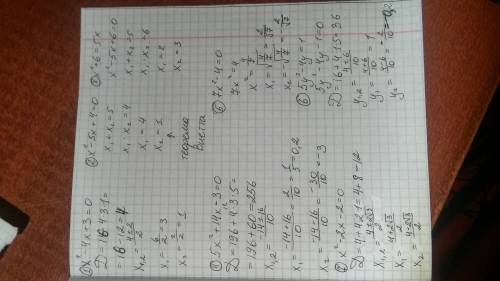 ① x²-4x+3=0
D=16-4·3·1=
=16-12=4
x₁,₂=(4±2)/2
x₁=6/2=3
x₂=2/2=1
② x²-5x+4=0
x₁+x₂=5
x₁·x₂=4
x₁=4
x₂=1
теорема
Виетта
x²+6=5x
x²-5x+6=0
x₁+x₂=5
x₁·x₂=6
x₁=2
x₂=3
5x²+14x-3=0
D=196+4·3·5=
=196+60=256
x₁,₂=(-14±16)/10
x₁=(-14+16)/10=2/10=1/5=0,2
x₂=(-14-16)/10=-30/10=-3
7x²-4=0
7x²=4
x²=4/7
x₁=√(4/7)=2/√7
x₂=-√(4/7)=-2/√7
x²-2x-2=0
D=4+4·2·1=4+8=12
x₁,₂=(2±2√3)/2
⑥ 5y²-4y=1
5y²-4y-1=0
D=16+4·1·5=36
y₁,₂=(4±6)/10
y₁=(4+6)/10=1
y₂=(4-6)/10=-2/10=-0,2